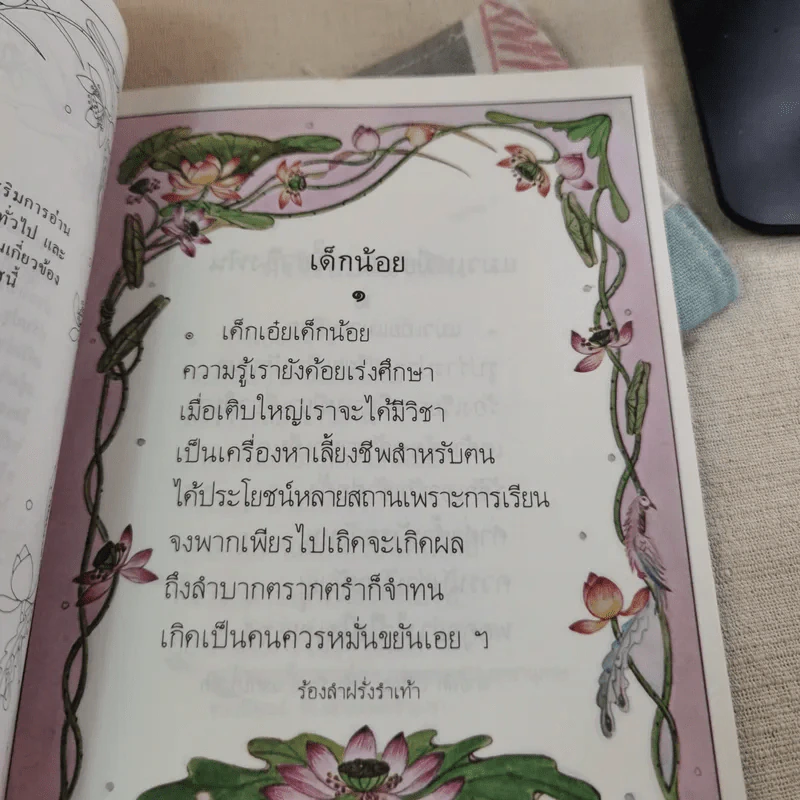 ทั่วไป และ
เด็กน้อย
๑
๏ เด็กเอ๋ยเด็กน้อย
ความรู้เรายังด้อยเร่งศึกษา
เมื่อเติบใหญ่เราจะได้มีวิชา
เป็นเครื่องหาเลี้ยงชีพสำหรับตน
ได้ประโยชน์หลายสถานเพราะการเรียน
จงพากเพียรไปเถิดจะเกิดผล
ถึงลำบากตรากตรำก็จำทน
เกิดเป็นคนควรหมั่นขยันเอย ฯ
ร้องลำฝรั่งรำเท้า